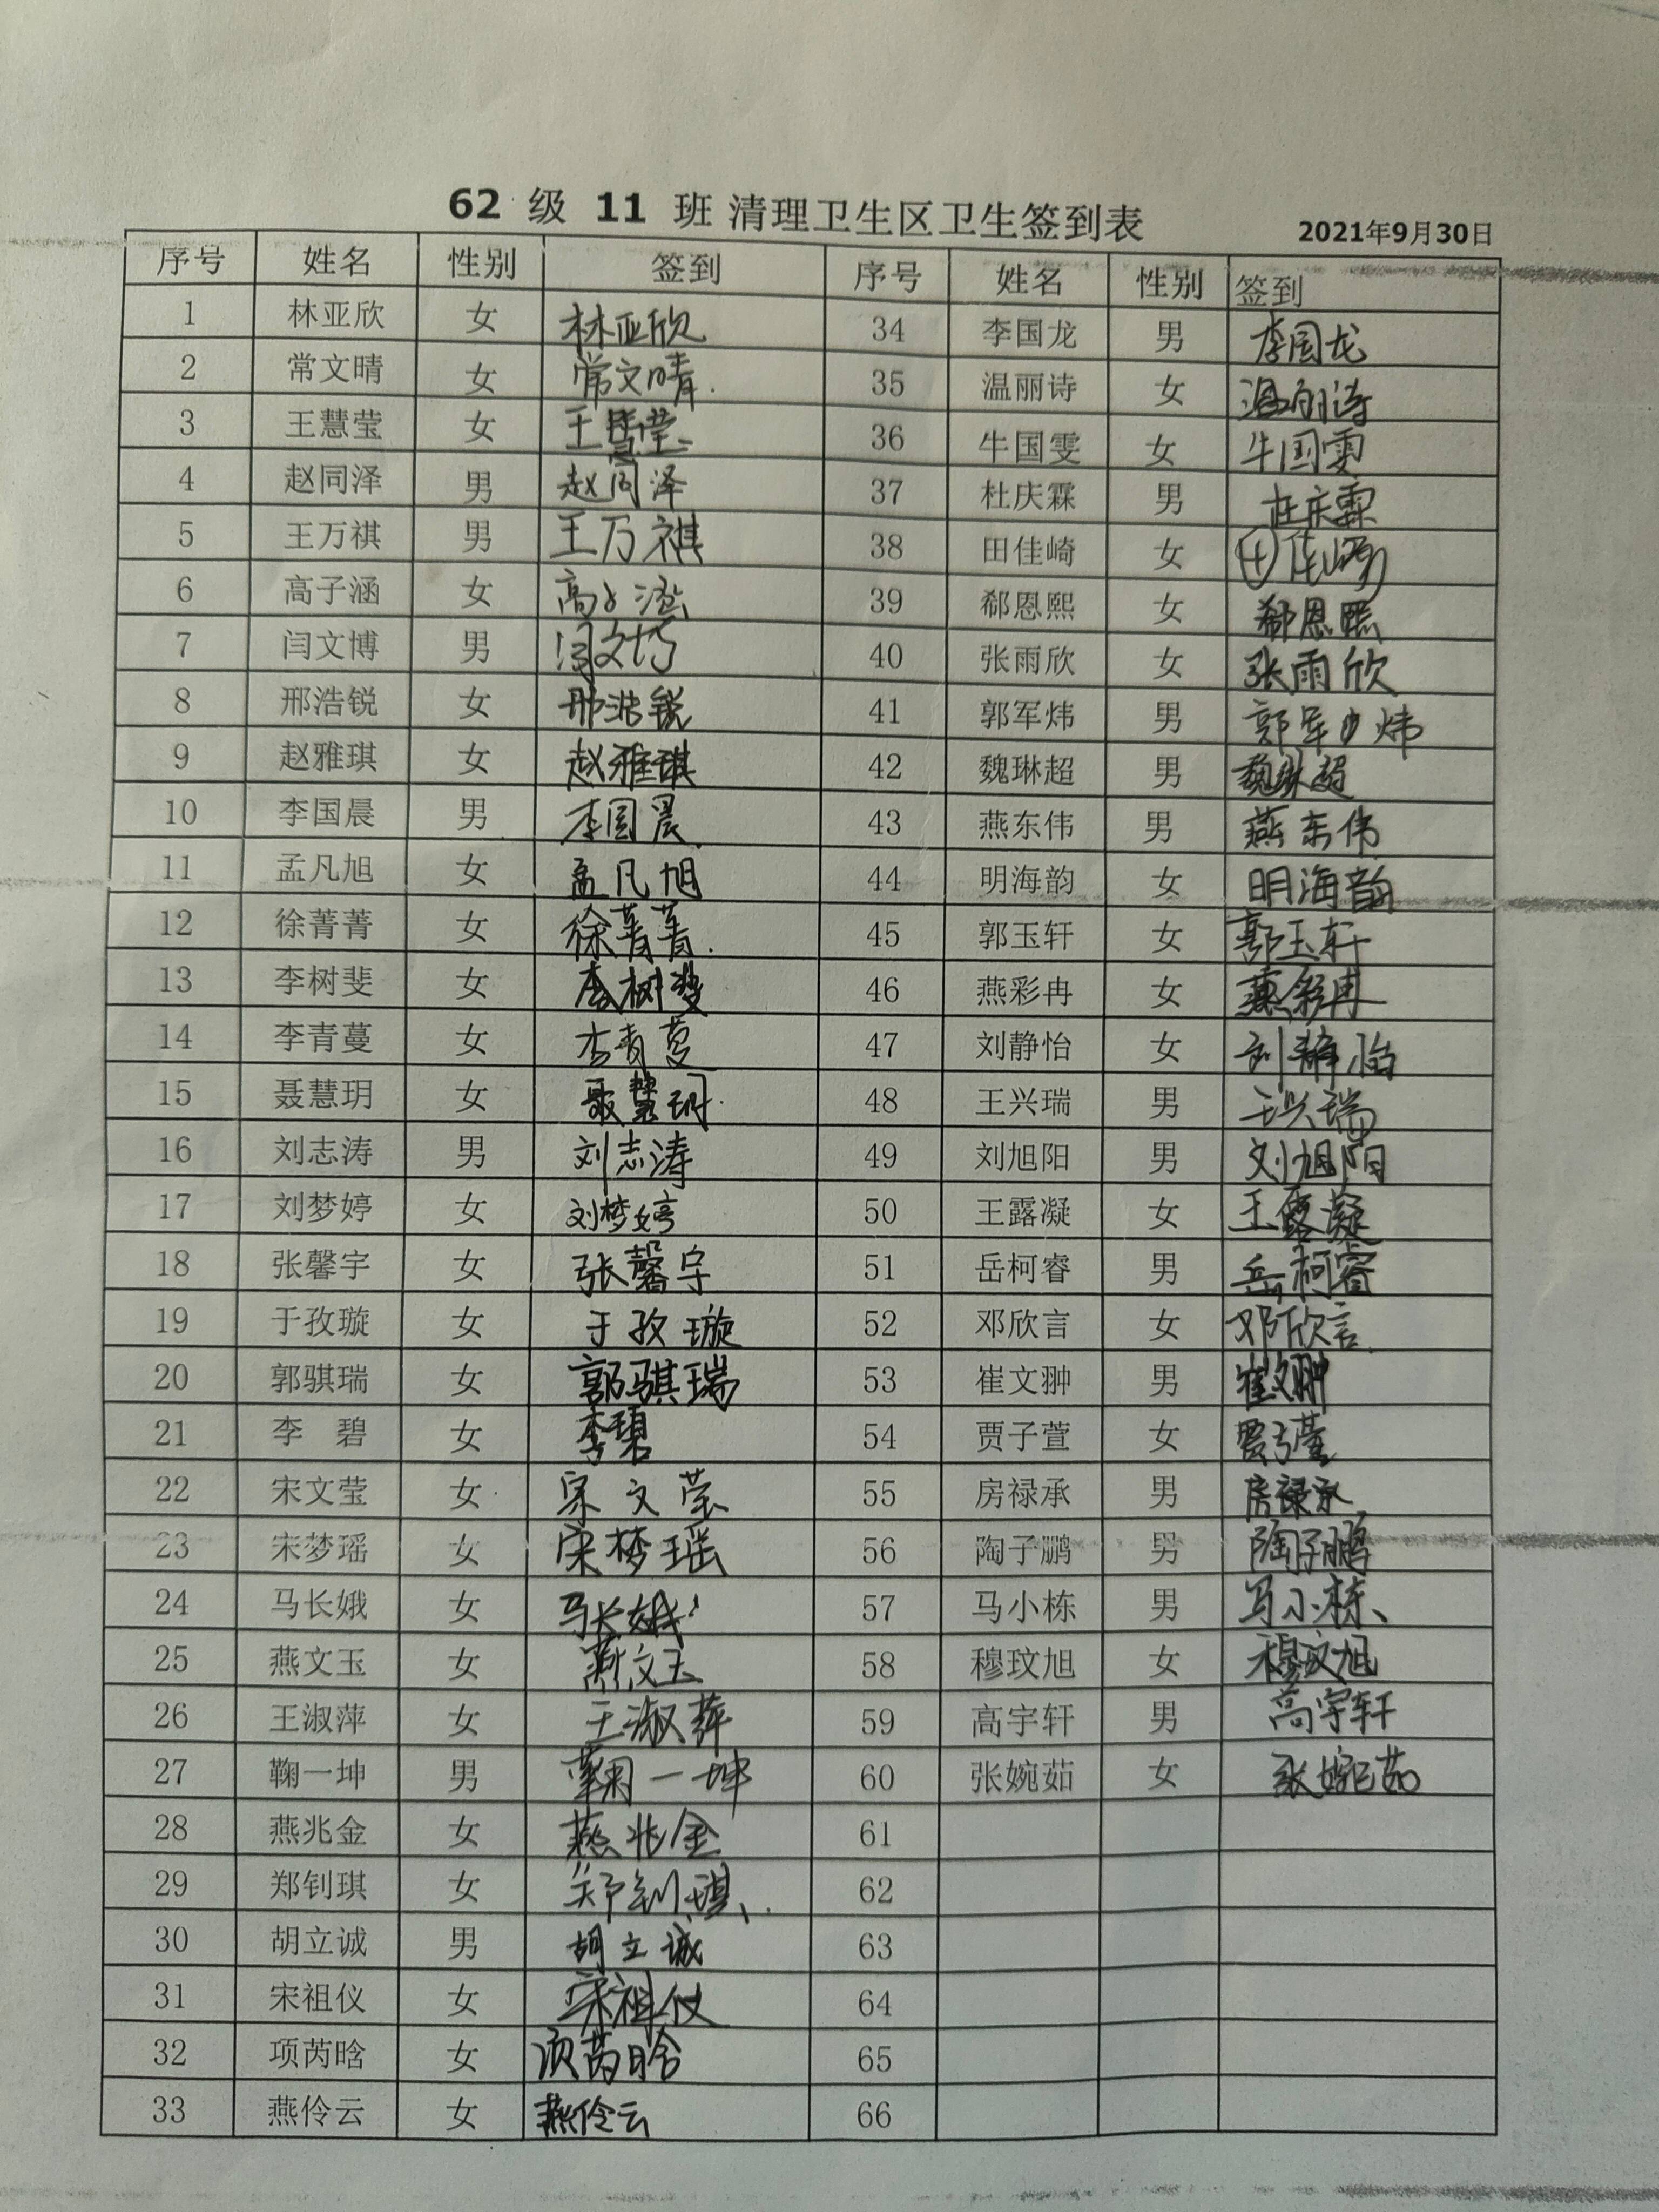 62 级 11 班 清理卫生区卫生签到表
2021年9月30日
序号 姓名 性别 签到 序号 姓名 性别 签到
1 林亚欣 女 林亚欣 34 李国龙 男 李国龙
2 常文晴 女 常文晴. 35 温丽诗 女 温丽诗
3 王慧莹 女 王慧莹 36 牛国雯 女 牛国雯
4 赵同泽 男 赵同泽 37 杜庆霖 男 杜庆霖
5 王万祺 男 王万祺 38 田佳崎 女 田佳崎
6 高子涵 女 高子涵 39 郗恩熙 女 郗恩熙
7 闫文博 男 闫文博 40 张雨欣 女 张雨欣
8 邢浩锐 女 邢浩锐 41 郭军炜 男 郭军炜
9 赵雅琪 女 赵雅琪 42 魏琳超 男 魏琳超
10 李国晨 男 李国晨 43 燕东伟 男 燕东伟
11 孟凡旭 女 孟凡旭 44 明海韵 女 明海韵
12 徐菁菁 女 徐菁菁. 45 郭玉轩 女 郭玉轩
13 李树斐 女 李树斐 46 燕彩冉 女 燕彩冉
14 李青蔓 女 李青蔓 47 刘静怡 女 刘静怡
15 聂慧玥 女 聂慧玥. 48 王兴瑞 男 王兴瑞
16 刘志涛 男 刘志涛 49 刘旭阳 男 刘旭阳
17 刘梦婷 女 刘梦婷 50 王露凝 女 王露凝
18 张馨宇 女 张馨宇 51 岳柯睿 男 岳柯睿
19 于孜璇 女 于孜璇 52 邓欣言 女 邓欣言
20 郭骐瑞 女 郭骐瑞 53 崔文翀 男 崔文翀
21 李 碧 女 李碧 54 贾子萱 女 贾子萱
22 宋文莹 女 宋文莹 55 房禄承 男 房禄承
23 宋梦瑶 女 宋梦瑶 56 陶子鹏 男 陶子鹏
24 马长娥 女 马长娥 57 马小栋 男 马小栋、
25 燕文玉 女 燕文玉 58 穆玟旭 女 穆玟旭
26 王淑萍 女 王淑萍 59 高宇轩 男 高宇轩
27 鞠一坤 男 鞠一坤 60 张婉茹 女 张婉茹
28 燕兆金 女 燕兆金 61
29 郑钊琪 女 郑钊琪、 62
30 胡立诚 男 胡立诚 63
31 宋祖仪 女 宋祖仪 64
32 项芮晗 女 项芮晗 65
33 燕伶云 女 燕伶云 66